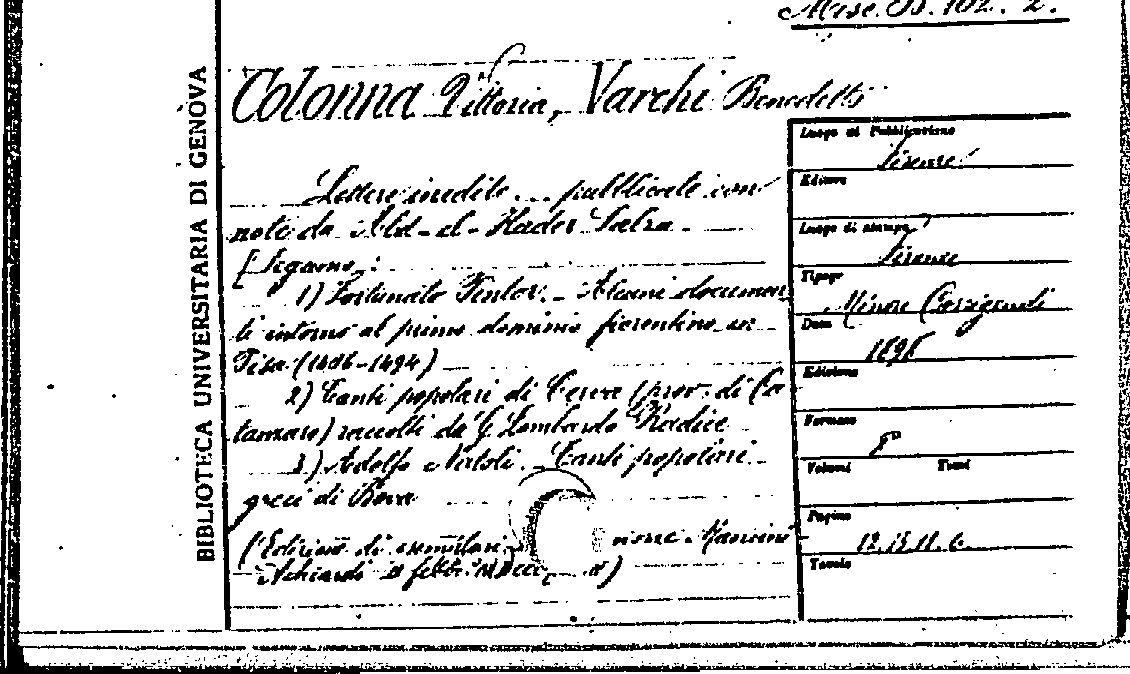 Misc. B. 102. 2.
BIBLIOTECA UNIVERSITARIA DI GENOVA
Colonna Vittoria, Varchi Benedetto
Lettere inedite... pubblicate con
note da Abd-el-Kader Salza
[Seguono:
1) Fortunato Pintor. - Alcuni documen
ti intorno al primo dominio fiorentino in
Pisa (1406-1494)
2) Canti popolari di (prov. di Ca
tanzaro) raccolti da G. Lombardo Radice
3) Adolfo Natoli. - Canti popolari
greci di Bova
(Edizione di esemplari
Achiardi
Luogo di Pubblicazione
Firenze
Editore
Luogo di stampa
Firenze
Tipogr
Minori Corrigendi
Data
Edizione
Formato
8°
Volumi Tomi
Pagine
Tavole